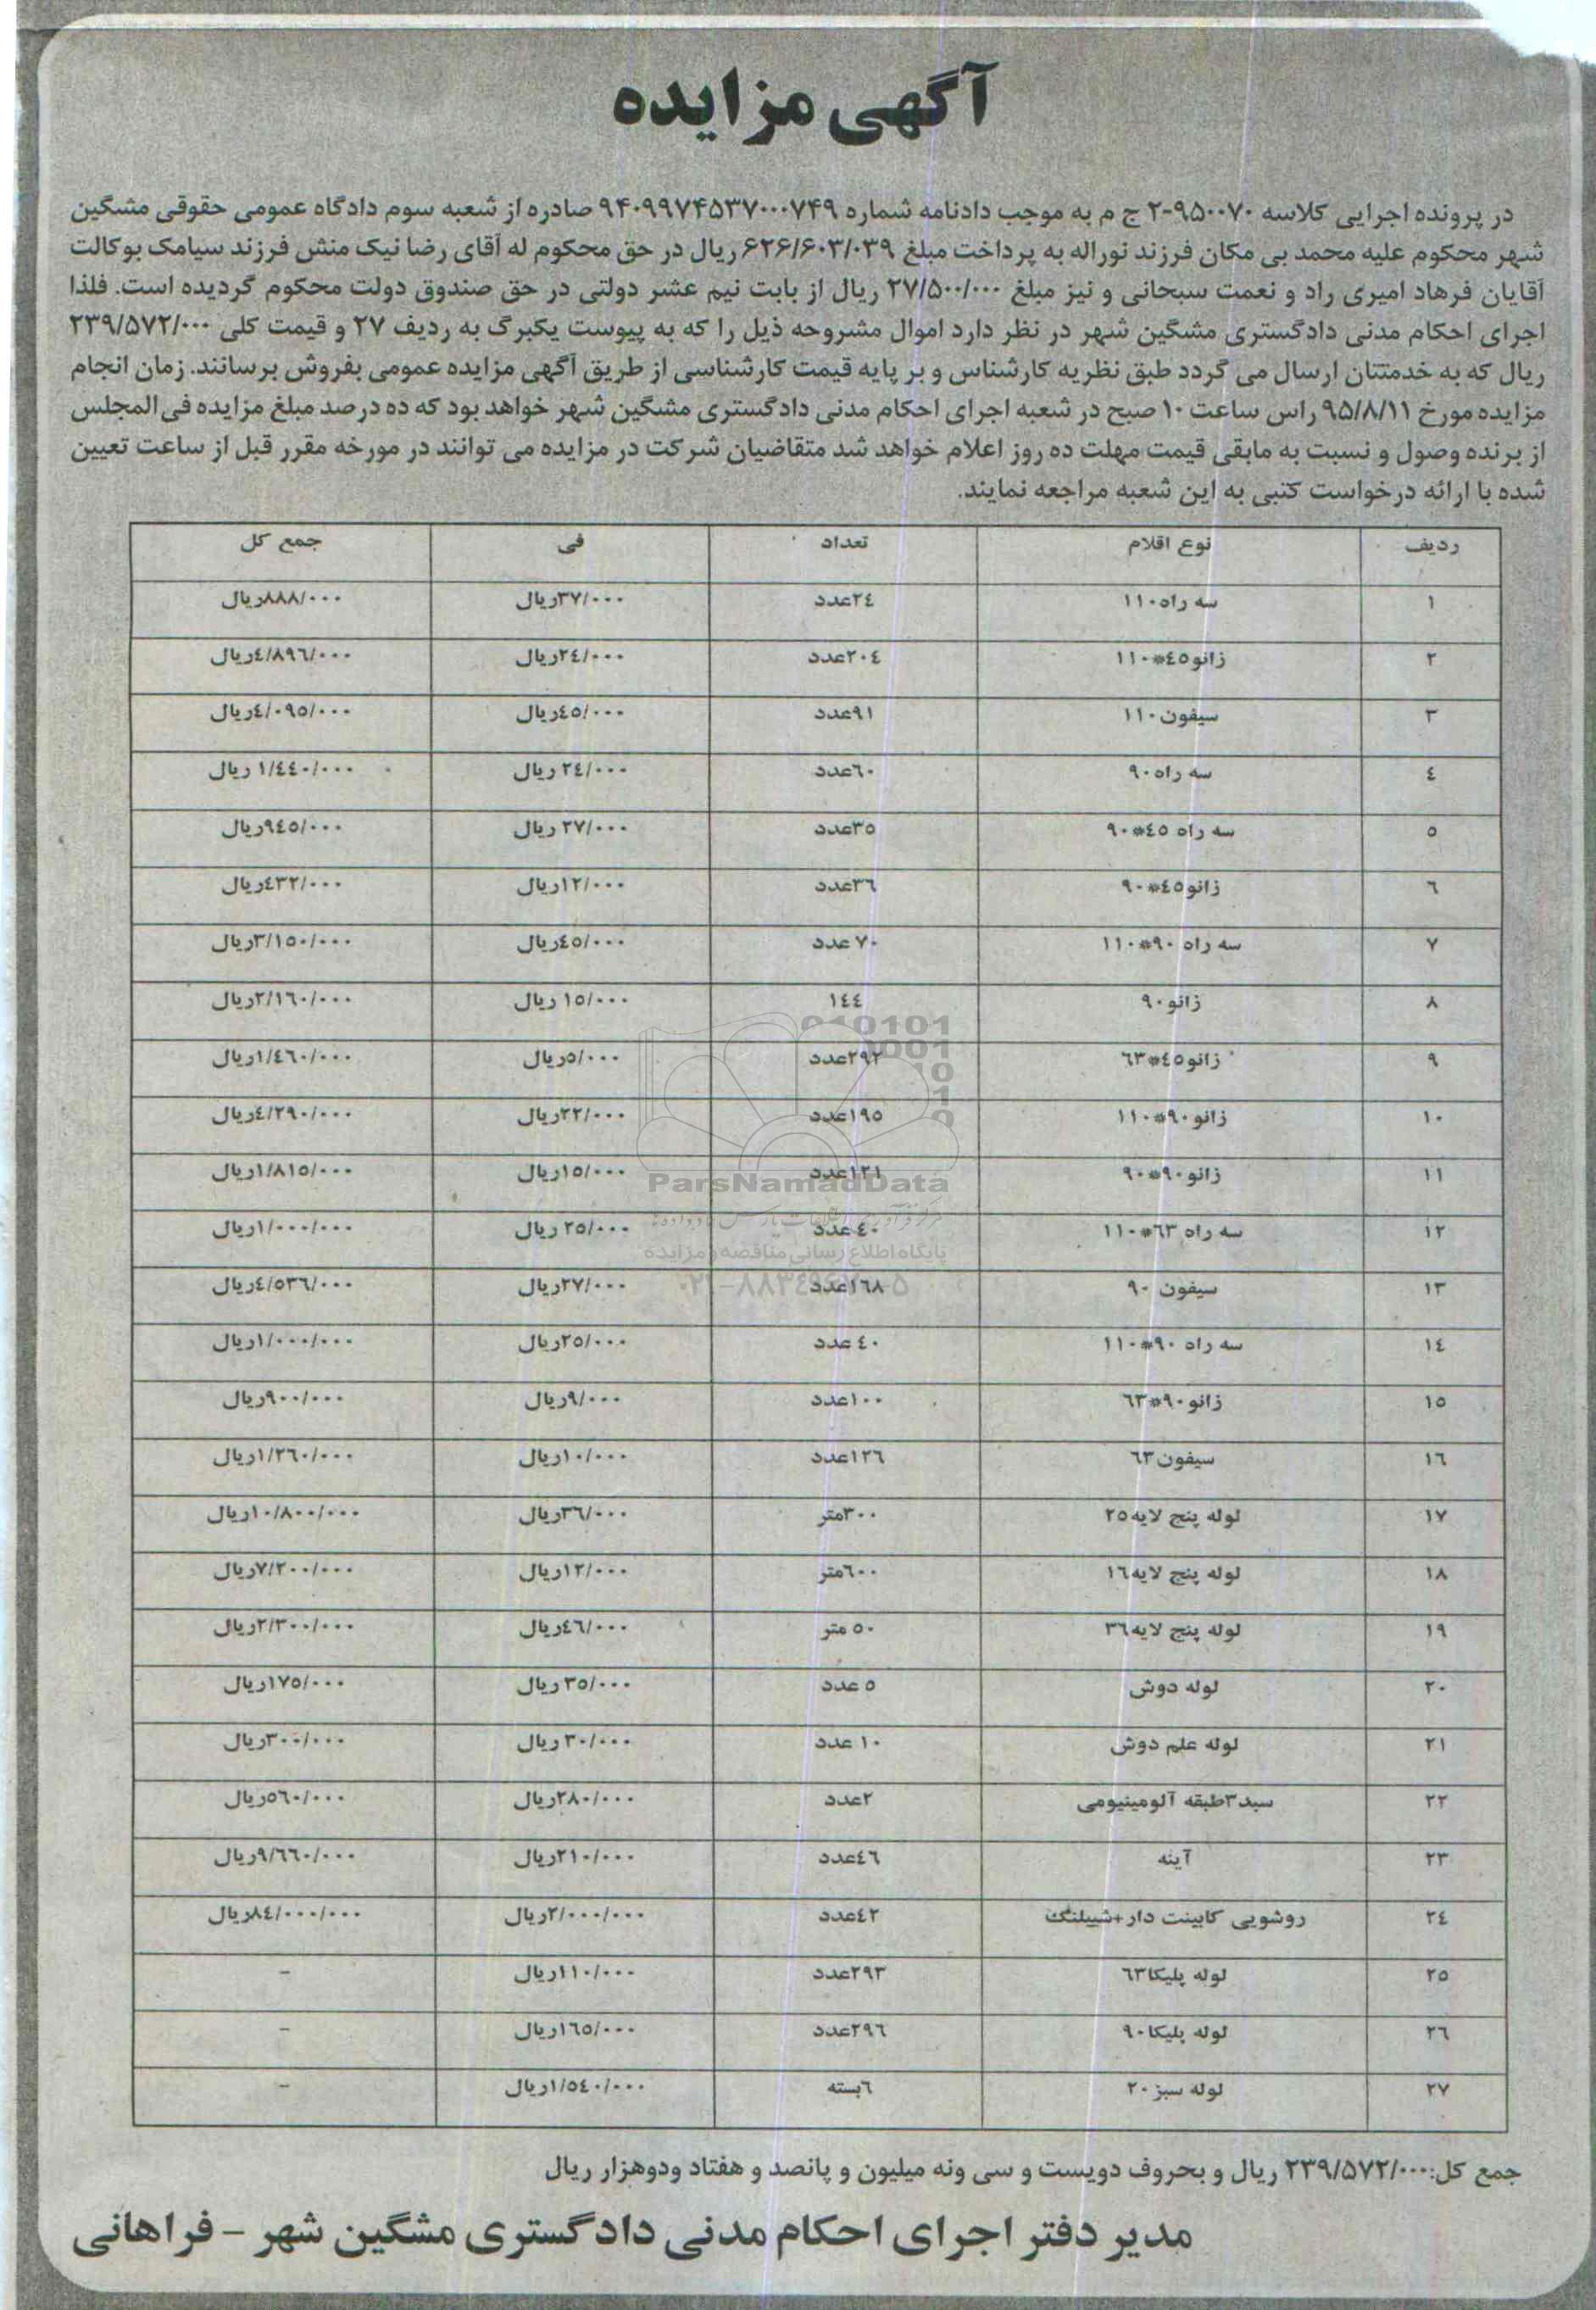 آگهی مزایده
در پرونده اجرایی کلاسه ۹۵۰۰۷۰-۲ ج م به موجب دادنامه شماره ۹۴۰۹۹۷۴۵۳۷۰۰۰۷۴۹ صادره از شعبه سوم دادگاه عمومی حقوقی مشگین
شهر محکوم علیه محمد بی مکان فرزند نوراله به پرداخت مبلغ ۶۲۶/۶۰۳/۰۳۹ ریال در حق محکوم له آقای رضا نیک منش فرزند سیامک بوکالت
آقایان فرهاد امیری راد و نعمت سبحانی و نیز مبلغ ۲۷/۵۰۰/۰۰۰ ریال از بابت نیم عشر دولتی در حق صندوق دولت محکوم گردیده است. فلذا
اجرای احکام مدنی دادگستری مشگین شهر در نظر دارد اموال مشروحه ذیل را که به پیوست یکبرگ به ردیف ۲۷ و قیمت کلی ۲۳۹/۵۷۲/۰۰۰
ریال که به خدمتتان ارسال می گردد طبق نظریه کارشناس و بر پایه قیمت کارشناسی از طریق آگهی مزایده عمومی بفروش برسانند. زمان انجام
مزایده مورخ ۹۵/۸/۱۱ راس ساعت ۱۰ صبح در شعبه اجرای احکام مدنی دادگستری مشگین شهر خواهد بود که ده درصد مبلغ مزایده فی المجلس
از برنده وصول و نسبت به مابقی قیمت مهلت ده روز اعلام خواهد شد متقاضیان شرکت در مزایده می توانند در مورخه مقرر قبل از ساعت تعیین
شده با ارائه درخواست کتبی به این شعبه مراجعه نمایند.
ردیف نوع اقلام تعداد فی جمع کل
۱ سه راه۱۱۰ ۲٤عدد ۳۷/۰۰۰ریال ۸۸۸/۰۰۰ریال
۲ زانو٤٥*۱۱۰ ۲۰٤عدد ۲٤/۰۰۰ریال ٤/۸۹٦/۰۰۰ریال
۳ سیفون۱۱۰ ۹۱عدد ٤٥/۰۰۰ریال ٤/۰۹٥/۰۰۰ریال
٤ سه راه۹۰ ٦۰عدد ۲٤/۰۰۰ ریال ۱/٤٤۰/۰۰۰ ریال
٥ سه راه ٤٥*۹۰ ۳٥عدد ۲۷/۰۰۰ ریال ۹٤٥/۰۰۰ریال
٦ زانو٤٥*۹۰ ۳٦عدد ۱۲/۰۰۰ریال ٤۳۲/۰۰۰ریال
۷ سه راه ۹۰*۱۱۰ ۷۰ عدد ٤٥/۰۰۰ریال ۳/۱٥۰/۰۰۰ریال
۸ زانو۹۰ ۱٤٤ ۱٥/۰۰۰ ریال ۲/۱٦۰/۰۰۰ریال
۹ زانو٤٥*٦۳ ۲۹۲عدد ٥/۰۰۰ریال ۱/٤٦۰/۰۰۰ریال
۱۰ زانو۹۰*۱۱۰ ۱۹٥عدد ۲۲/۰۰۰ریال ٤/۲۹۰/۰۰۰ریال
۱۱ زانو۹۰*۹۰ ۱۲۱عدد ۱٥/۰۰۰ریال ۱/۸۱٥/۰۰۰ریال
۱۲ سه راه ٦۳*۱۱۰ ٤۰عدد ۲٥/۰۰۰ ریال ۱/۰۰۰/۰۰۰ریال
۱۳ سیفون ۹۰ ۱٦۸عدد ۲۷/۰۰۰ریال ٤/٥۳٦/۰۰۰ریال
۱٤ سه راه ۹۰*۱۱۰ ٤۰ عدد ۲٥/۰۰۰ریال ۱/۰۰۰/۰۰۰ریال
۱٥ زانو۹۰*٦۳ ۱۰۰عدد ۹/۰۰۰ریال ۹۰۰/۰۰۰ریال
۱٦ سیفون٦۳ ۱۲٦عدد ۱۰/۰۰۰ریال ۱/۲٦۰/۰۰۰ریال
۱۷ لوله پنج لایه۲٥ ۳۰۰متر ۳٦/۰۰۰ریال ۱۰/۸۰۰/۰۰۰ریال
۱۸ لوله پنج لایه۱٦ ٦۰۰متر ۱۲/۰۰۰ریال ۷/۲۰۰/۰۰۰ریال
۱۹ لوله پنج لایه۳٦ ٥۰ متر ٤٦/۰۰۰ریال ۲/۳۰۰/۰۰۰ریال
۲۰ لوله دوش ٥ عدد ۳٥/۰۰۰ ریال ۱۷٥/۰۰۰ریال
۲۱ لوله علم دوش ۱۰ عدد ۳۰/۰۰۰ ریال ۳۰۰/۰۰۰ریال
۲۲ سبد۳طبقه آلومینیومی ۲عدد ۲۸۰/۰۰۰ریال ٥٦۰/۰۰۰ریال
۲۳ آینه ٤٦عدد ۲۱۰/۰۰۰ریال ۹/٦٦۰/۰۰۰ریال
۲٤ روشویی کابینت دار+شیلنگ ٤۲عدد ۲/۰۰۰/۰۰۰ریال ۸٤/۰۰۰/۰۰۰ریال
۲٥ لوله پلیکا٦۳ ۲۹۳عدد ۱۱۰/۰۰۰ریال -
۲٦ لوله پلیکا۹۰ ۲۹٦عدد ۱٦٥/۰۰۰ریال -
۲۷ لوله سبز۲۰ ٦بسته ۱/٥٤۰/۰۰۰ریال -
ParsNamadData
پایگاه اطلاع رسانی مناقصه و مزایده
جمع کل:۲۳۹/۵۷۲/۰۰۰ ریال و بحروف دویست و سی ونه میلیون و پانصد و هفتاد ودوهزار ریال
مدیر دفتر اجرای احکام مدنی دادگستری مشگین شهر - فراهانی